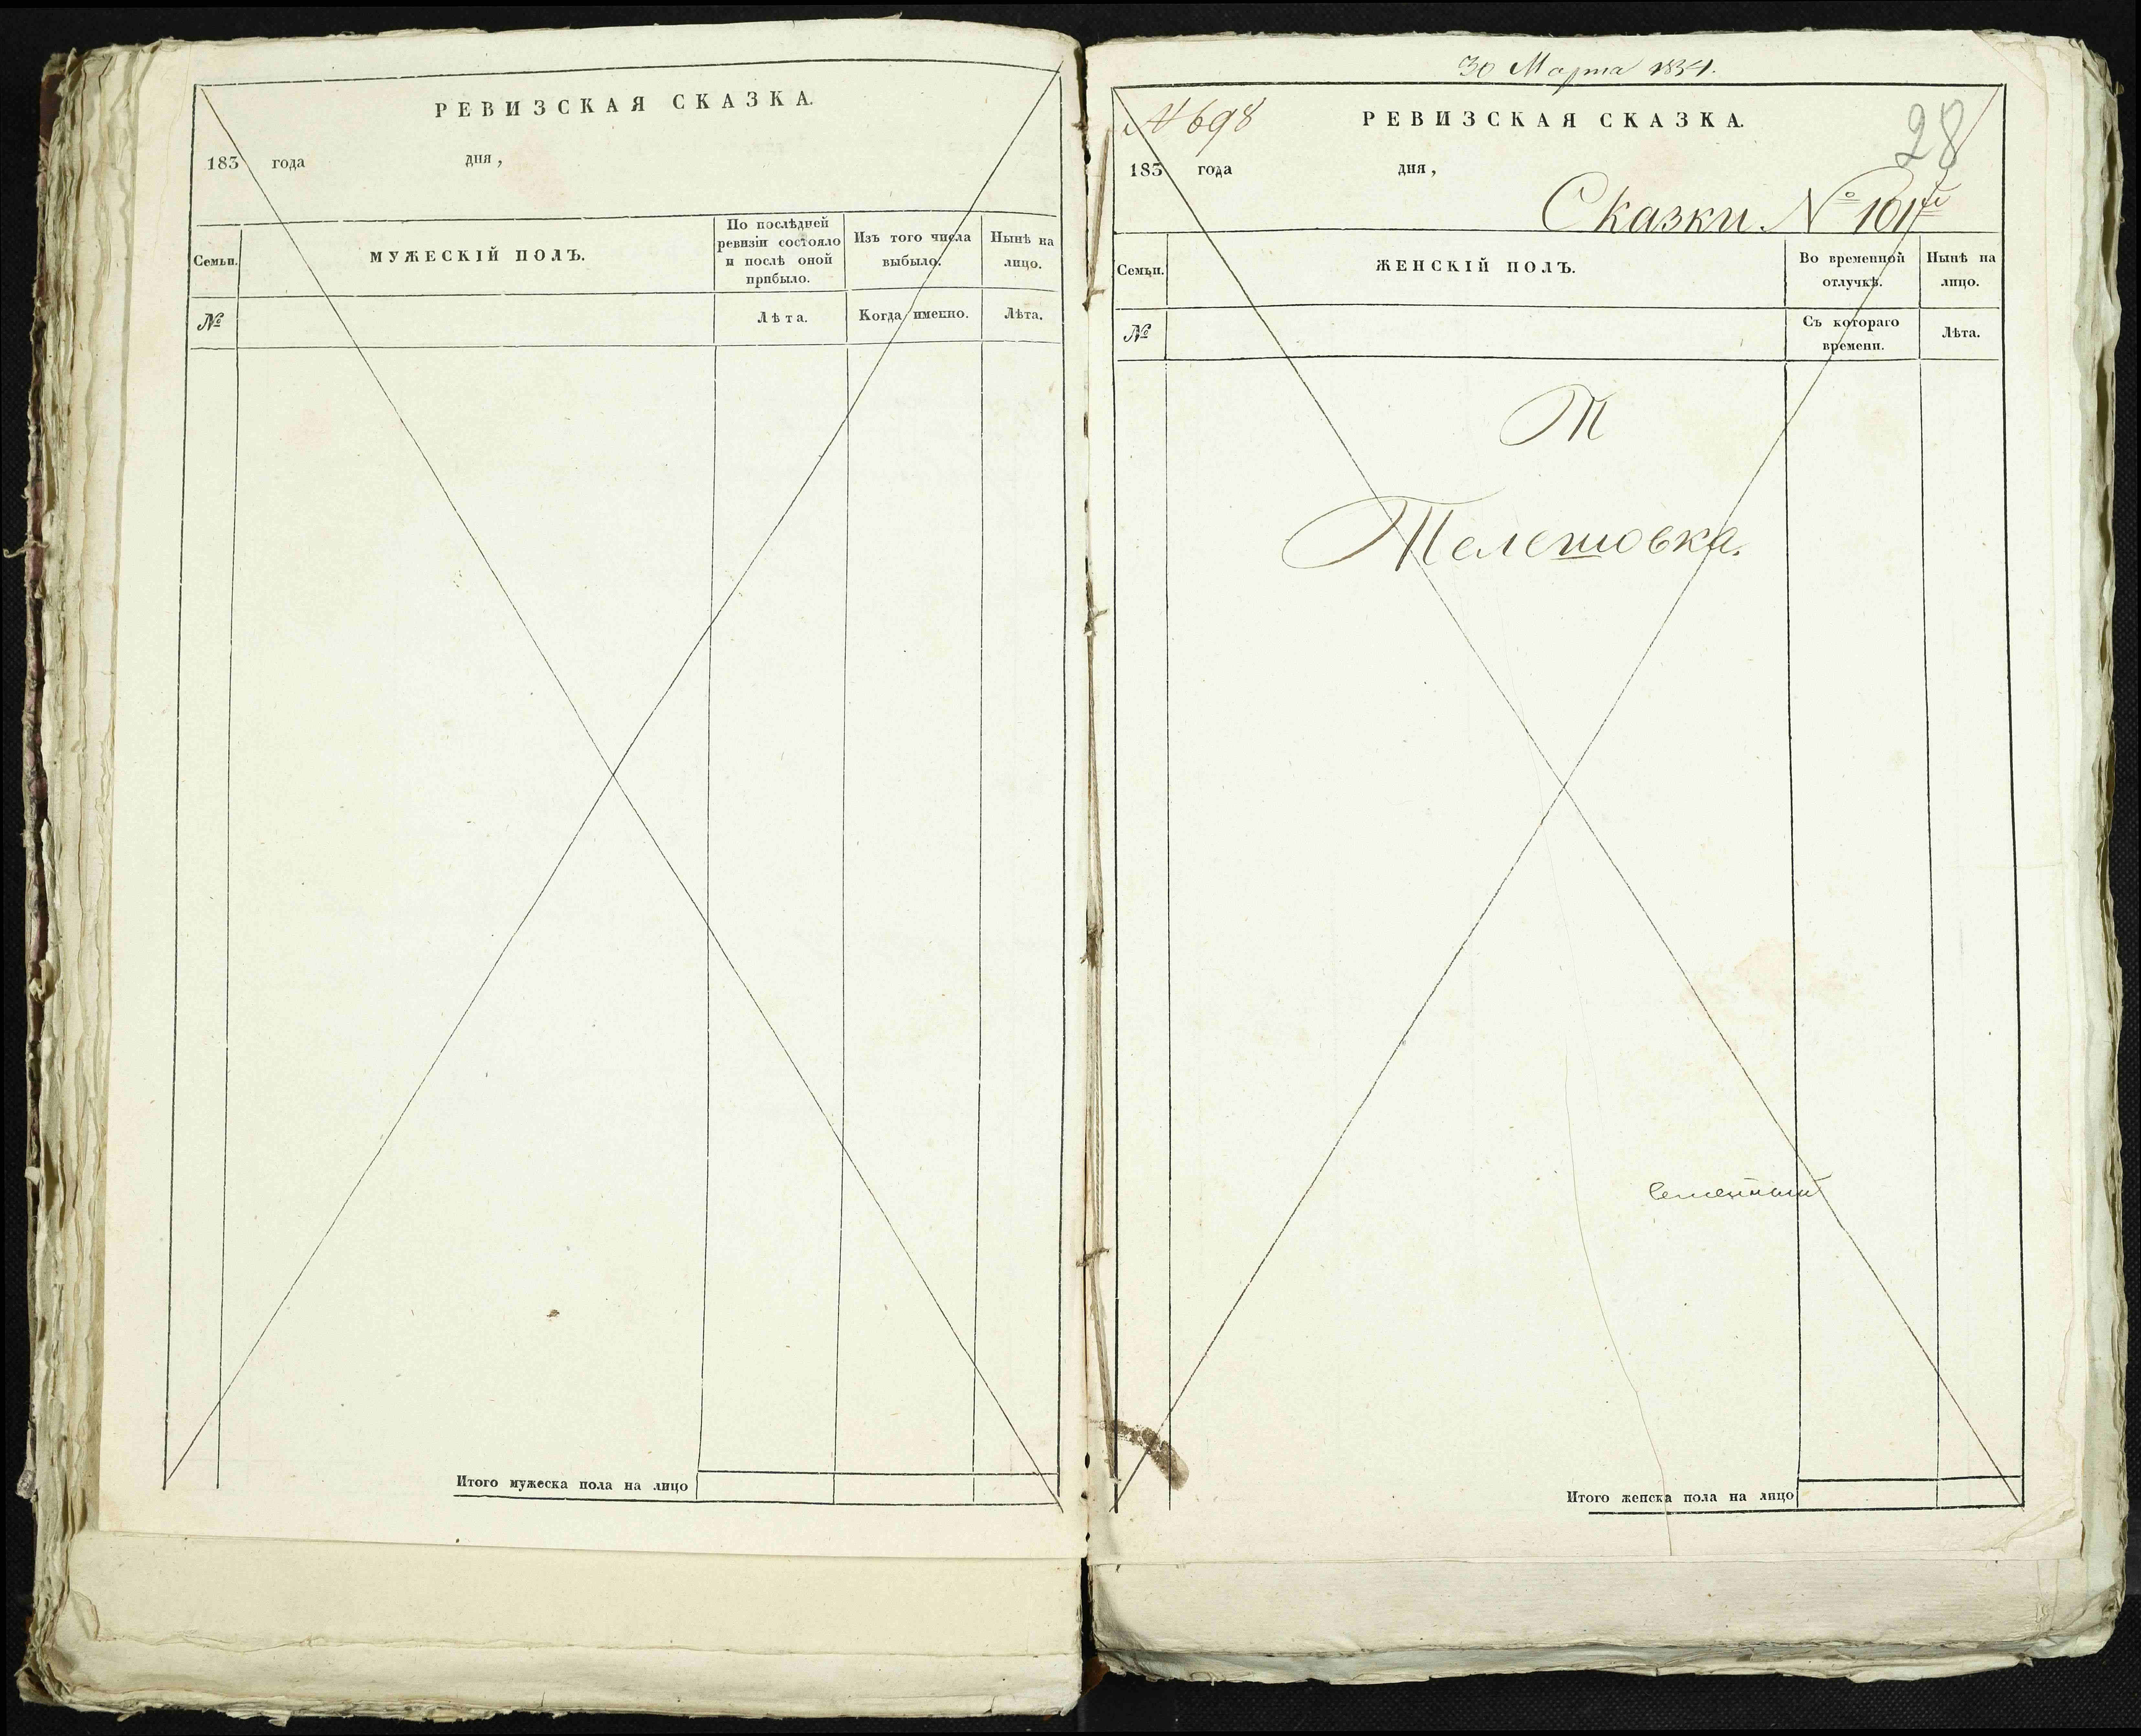 РЕВИЗСКАЯ СКАЗКА.
183 года дня,
Семьи.
МУЖЕСКІЙ ПОЛЪ.
По послѣдней ревизіи состояло и послѣ оной прибыло.
Изъ того числа выбыло.
Нынѣ на лицо.
№
Лѣта.
Когда именно.
Лѣта.
Итого мужеска пола на лицо
30 Марта 1834.
№ 698
РЕВИЗСКАЯ СКАЗКА.
28
183 года дня,
Сказки. № 101й
Семьи.
ЖЕНСКІЙ ПОЛЪ.
Во временной отлучкѣ.
Нынѣ на лицо.
№
Съ котораго времени.
Лѣта.
Т
Телешовка.
Итого женска пола на лицо